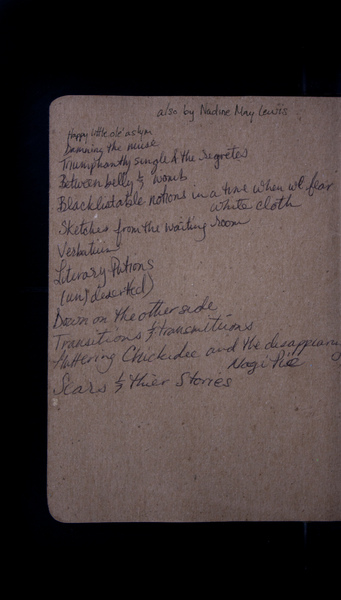 also by Nadine May Lewis
Happy little ole asylum
Damning the muse
Triumphantly single & the regretes
Between belly & womb
Blacklistable notions in a time when we fear
white cloth
Sketches from the waiting room
Verbatium
Literary Potions
(un)deserted)
Down on the otherside
Transitions & transmittions
fluttering Chickidee and the disappearing
Magi Pie
Scars & thier Stories